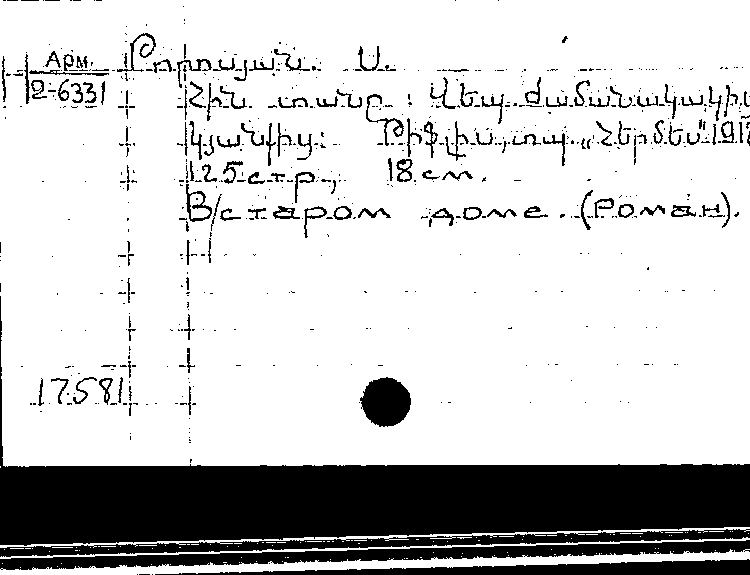 Арм.
2-6331
Թորոսյան. Ս.
Հին տանը: Վեպ ժամանակակից
կյանքից: Թիֆլիս, տպ. „Հերմես" 191
125 стр., 18 см.
В/старом доме. (Роман).
17581